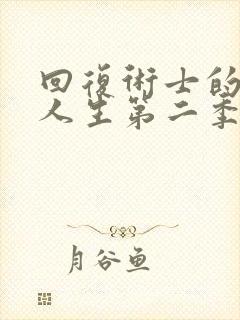 回復術士的
人生第二季
月谷鱼